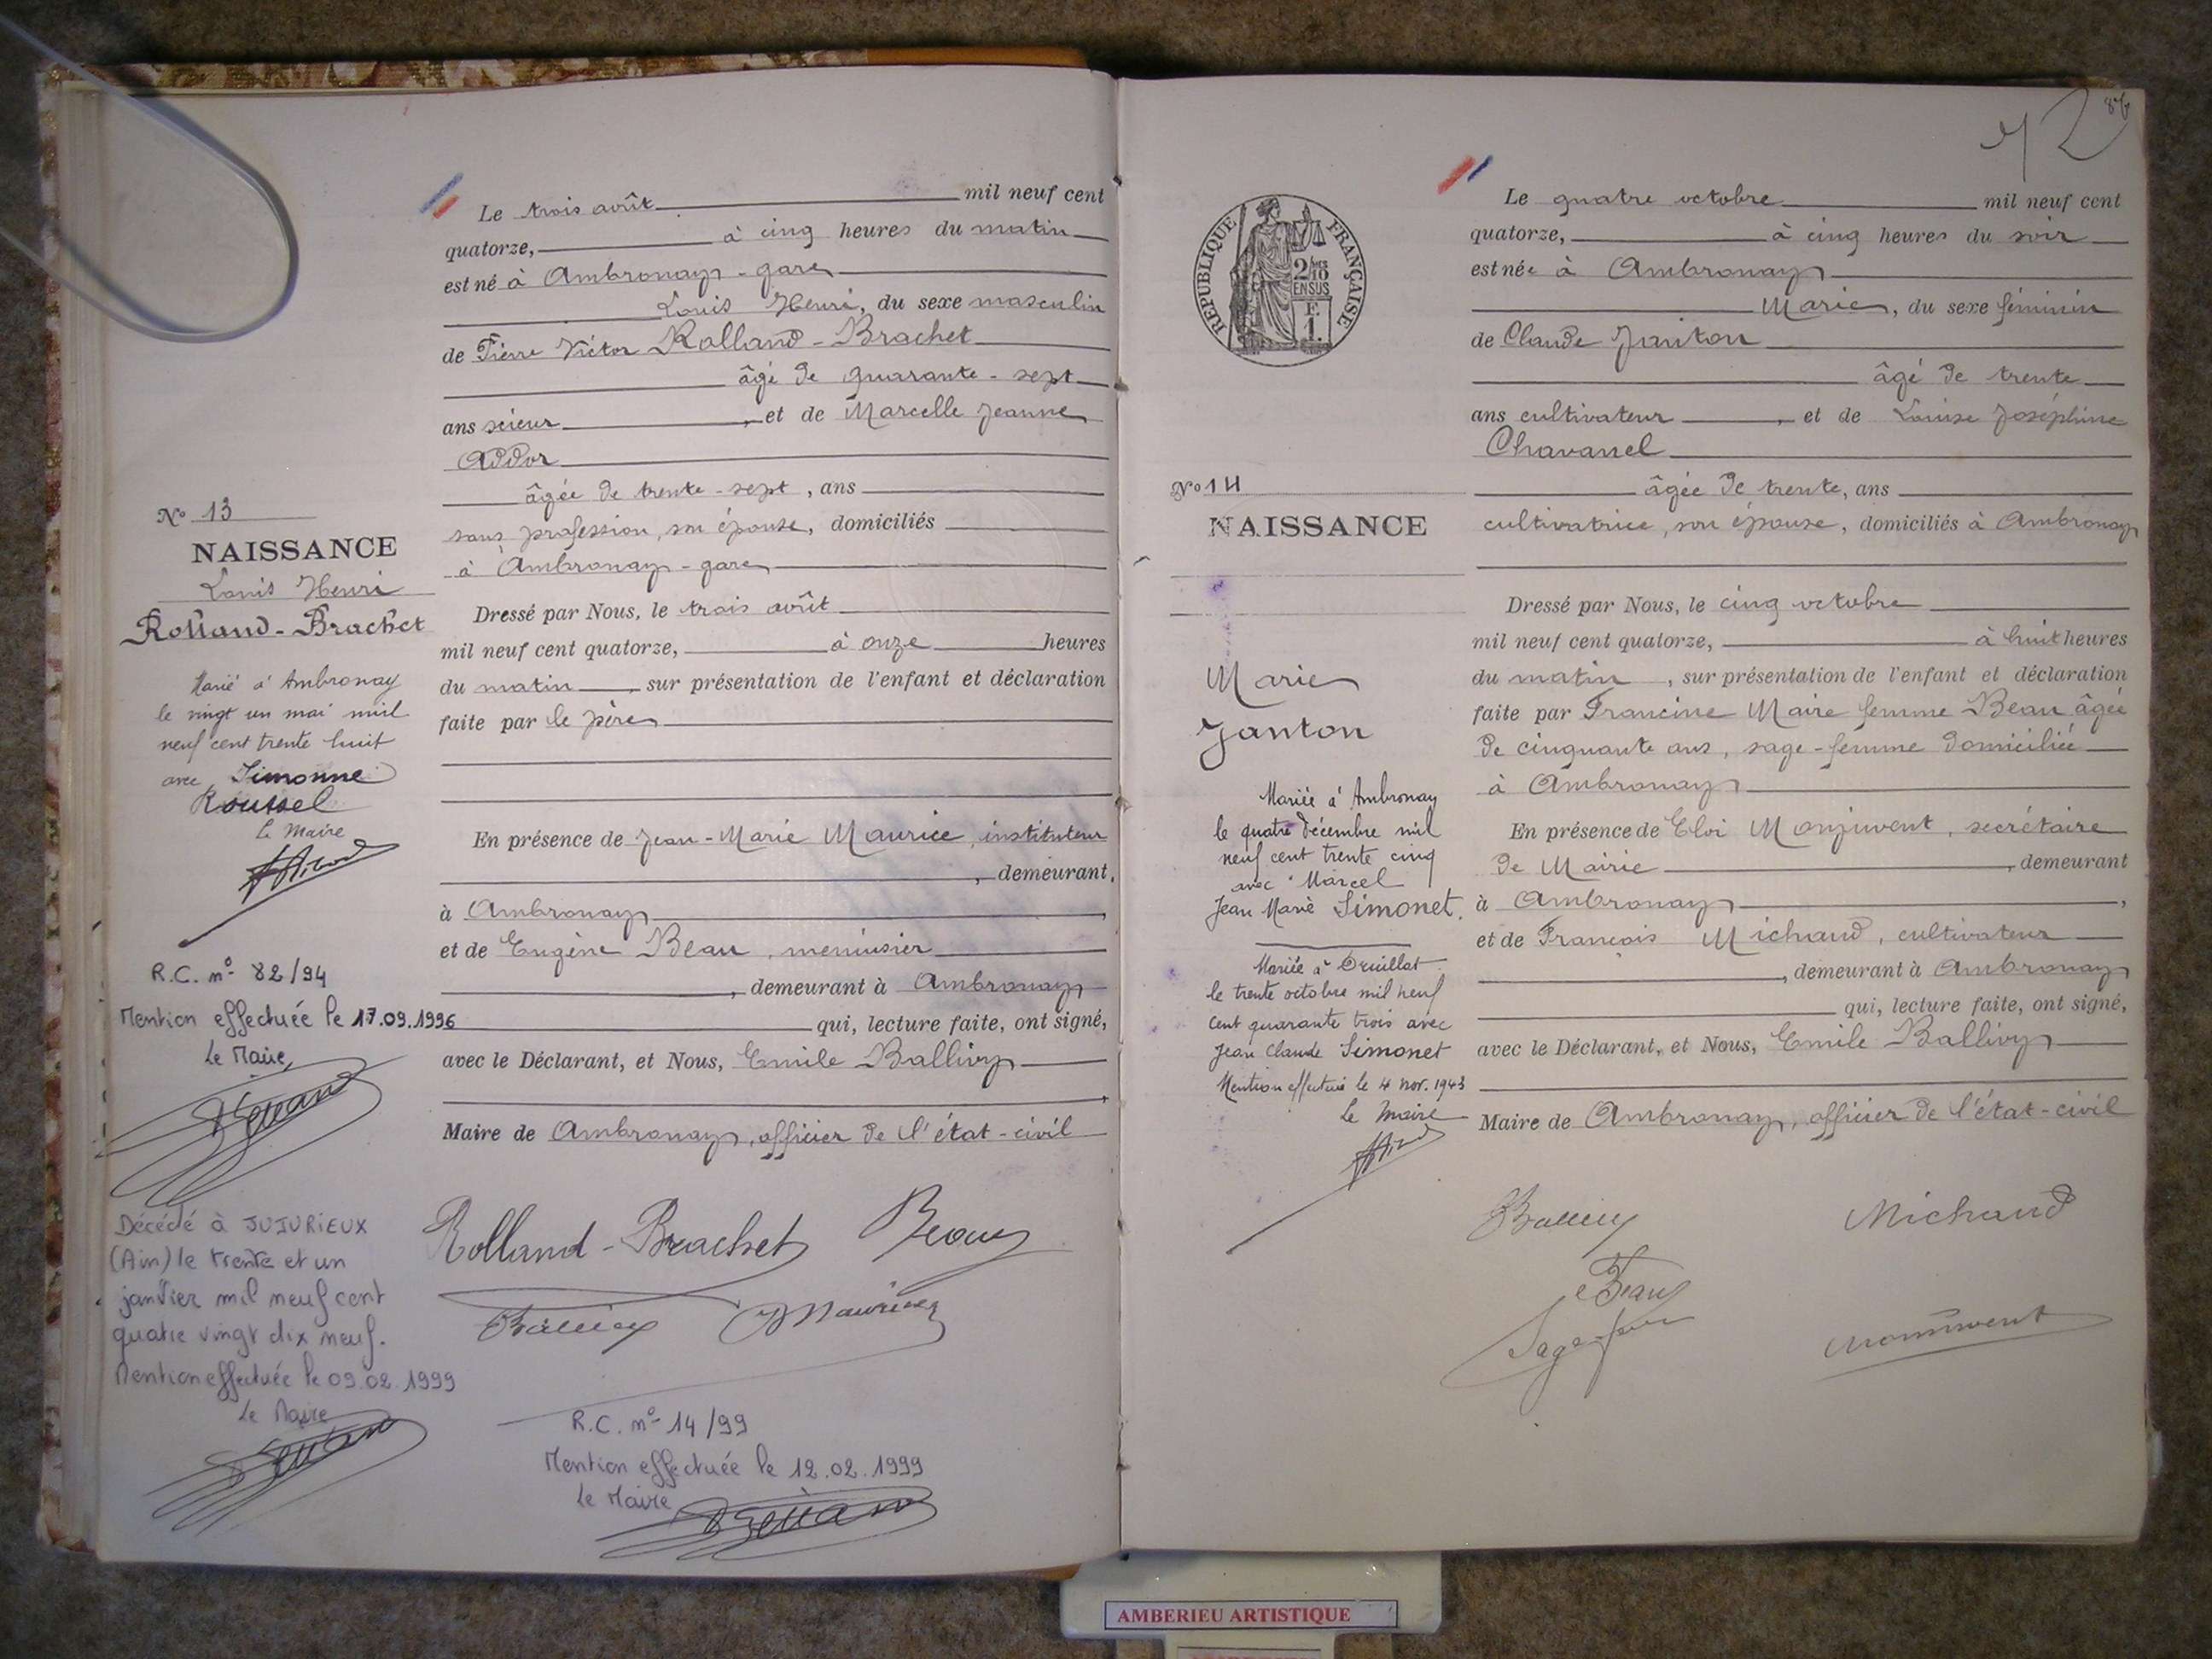 Le trois août mil neuf cent
quatorze, à cinq heures du matin
est né à Ambronay-gare
Louis Henri, du sexe masculin
de Pierre Victor Rolland-Brachet
âgé de quarante-sept
ans scieur, et de Marcelle Jeanne
Addor
âgée de trente-sept, ans
sans profession, son épouse, domiciliés
à Ambronay-gare
Dressé par Nous, le trois août
mil neuf cent quatorze, à onze heures
du matin, sur présentation de l'enfant et déclaration
faite par le père
En présence de Jean-Marie Maurice, instituteur
, demeurant
à Ambronay,
et de Eugène Beau, menuisier
, demeurant à Ambronay
qui, lecture faite, ont signé,
avec le Déclarant, et Nous, Emile Ballivy
Maire de Ambronay, officier de l'état-civil
Rolland-Brachet Beau
Ballivy Maurice
R.C. n° 14/99
Mention effectuée le 12.02.1999
Le Maire
N° 13
NAISSANCE
Louis Henri
Rolland-Brachet
Marié à Ambronay
le vingt un mai mil
neuf cent trente huit
avec Simonne
Roussel
Le Maire
R.C. n° 82/94
Mention effectuée le 17.09.1996
Le Maire,
Décédé à JUJURIEUX
(Ain) le trente et un
janvier mil neuf cent
quatre vingt dix neuf.
Mention effectuée le 09.02.1999
Le Maire
86
72
Le quatre octobre mil neuf cent
quatorze, à cinq heures du soir
est née à Ambronay
Marie, du sexe féminin
de Claude Janton
âgé de trente
ans cultivateur, et de Louise Joséphine
Chavanel
âgée de trente, ans
cultivatrice, son épouse, domiciliés à Ambronay
Dressé par Nous, le cinq octobre
mil neuf cent quatorze, à huit heures
du matin, sur présentation de l'enfant et déclaration
faite par Francine Maire femme Beau âgée
de cinquante ans, sage-femme domiciliée
à Ambronay
En présence de Eloi Monjuvent, secrétaire
de Mairie, demeurant
à Ambronay,
et de François Michaud, cultivateur
, demeurant à Ambronay
qui, lecture faite, ont signé,
avec le Déclarant, et Nous, Emile Ballivy
Maire de Ambronay, officier de l'état-civil
Ballivy Michaud
Beau
Sage-femme Monjuvent
RÉPUBLIQUE FRANÇAISE
2/10
EN SUS
F.
1.
N° 14
NAISSANCE
Marie
Janton
Mariée à Ambronay
le quatre décembre mil
neuf cent trente cinq
avec Marcel
Jean Marie Simonet.
Mariée à Druillat
le trente octobre mil neuf
cent quarante trois avec
Jean Claude Simonet
Mention effectuée le 4 nov. 1943
Le Maire
AMBERIEU ARTISTIQUE